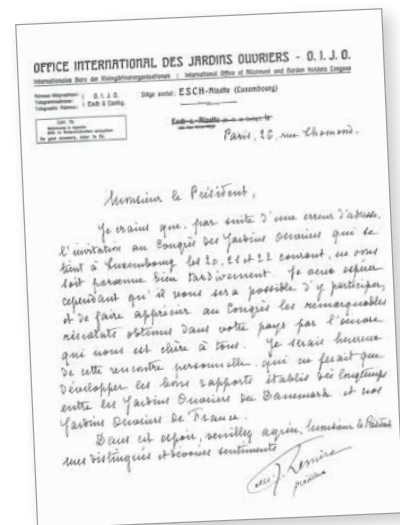 OFFICE INTERNATIONAL DES JARDINS OUVRIERS - O. I. J. O.
Internationales Büro der Kleingärtnerorganisationen : International Office of Allotment and Garden Holders Leagues
Adresse télégraphique :
Telegrammadresse :
Telegraphic Address :
O. I. J. O.
Esch s. Alzette
Siège social : ESCH-Alzette (Luxembourg)
Paris, 26, rue Lhomond.
Monsieur le Président,
Je crains que, par suite d'une erreur d'adresse,
l'invitation au Congrès des Jardins Ouvriers qui se
tient à Luxembourg les 20, 21 et 22 courant, ne vous
soit parvenue bien tardivement. Je veux espérer
cependant qu'il vous sera possible d'y participer,
et de faire apprécier au Congrès les remarquables
résultats obtenus dans votre pays par l'œuvre
qui nous est chère à tous. Je serais heureux
de cette rencontre personnelle, qui ne ferait que
développer les bons rapports établis dès longtemps
entre les Jardins Ouvriers du Danemark et nos
Jardins Ouvriers de France.
Dans cet espoir, veuillez agréer, Monsieur le Président
mes distingués et dévoués sentiments
président